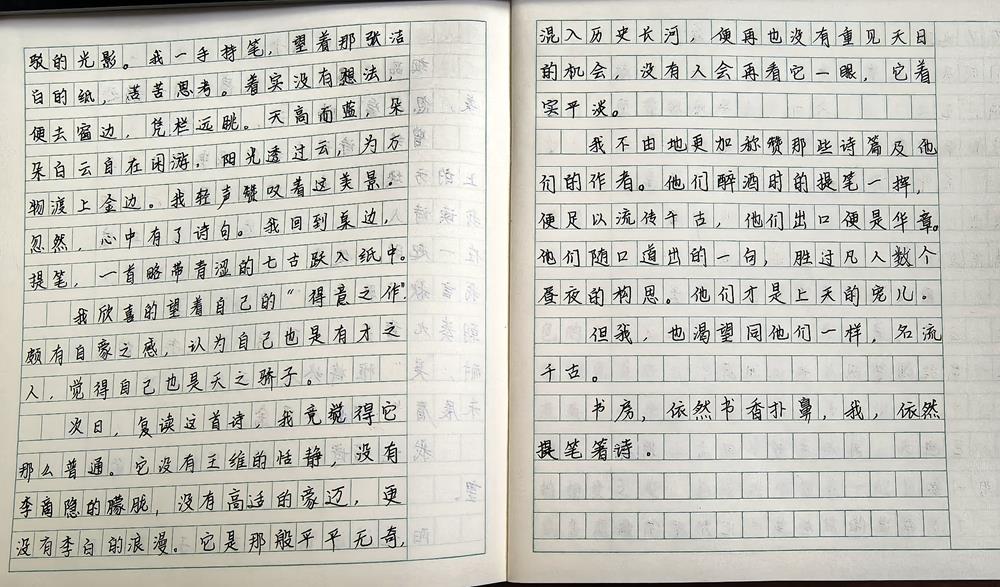 驳的光影。我一手持笔，望着那张洁
白的纸，苦苦思考。着实没有想法，
便去窗边，凭栏远眺。天高而蓝，朵
朵白云自在闲游，阳光透过云，为万
物渡上金边。我轻声赞叹着这美景。
忽然，心中有了诗句。我回到桌边，
提笔，一首略带青涩的七古跃入纸中。
我欣喜的望着自己的“得意之作”，
颇有自豪之感，认为自己也是有才之
人，觉得自己也是天之骄子。
次日，复读这首诗，我竟觉得它
那么普通。它没有王维的恬静，没有
李商隐的朦胧，没有高适的豪迈，更
没有李白的浪漫。它是那般平平无奇，
混入历史长河，便再也没有重见天日
的机会，没有人会再看它一眼，它着
实平淡。
我不由地更加称赞那些诗篇及他
们的作者。他们醉酒时的提笔一挥，
便足以流传千古，他们出口便是华章。
他们随口道出的一句，胜过凡人数个
昼夜的构思。他们才是上天的宠儿。
但我，也渴望同他们一样，名流
千古。
书房，依然书香扑鼻，我，依然
提笔著诗。